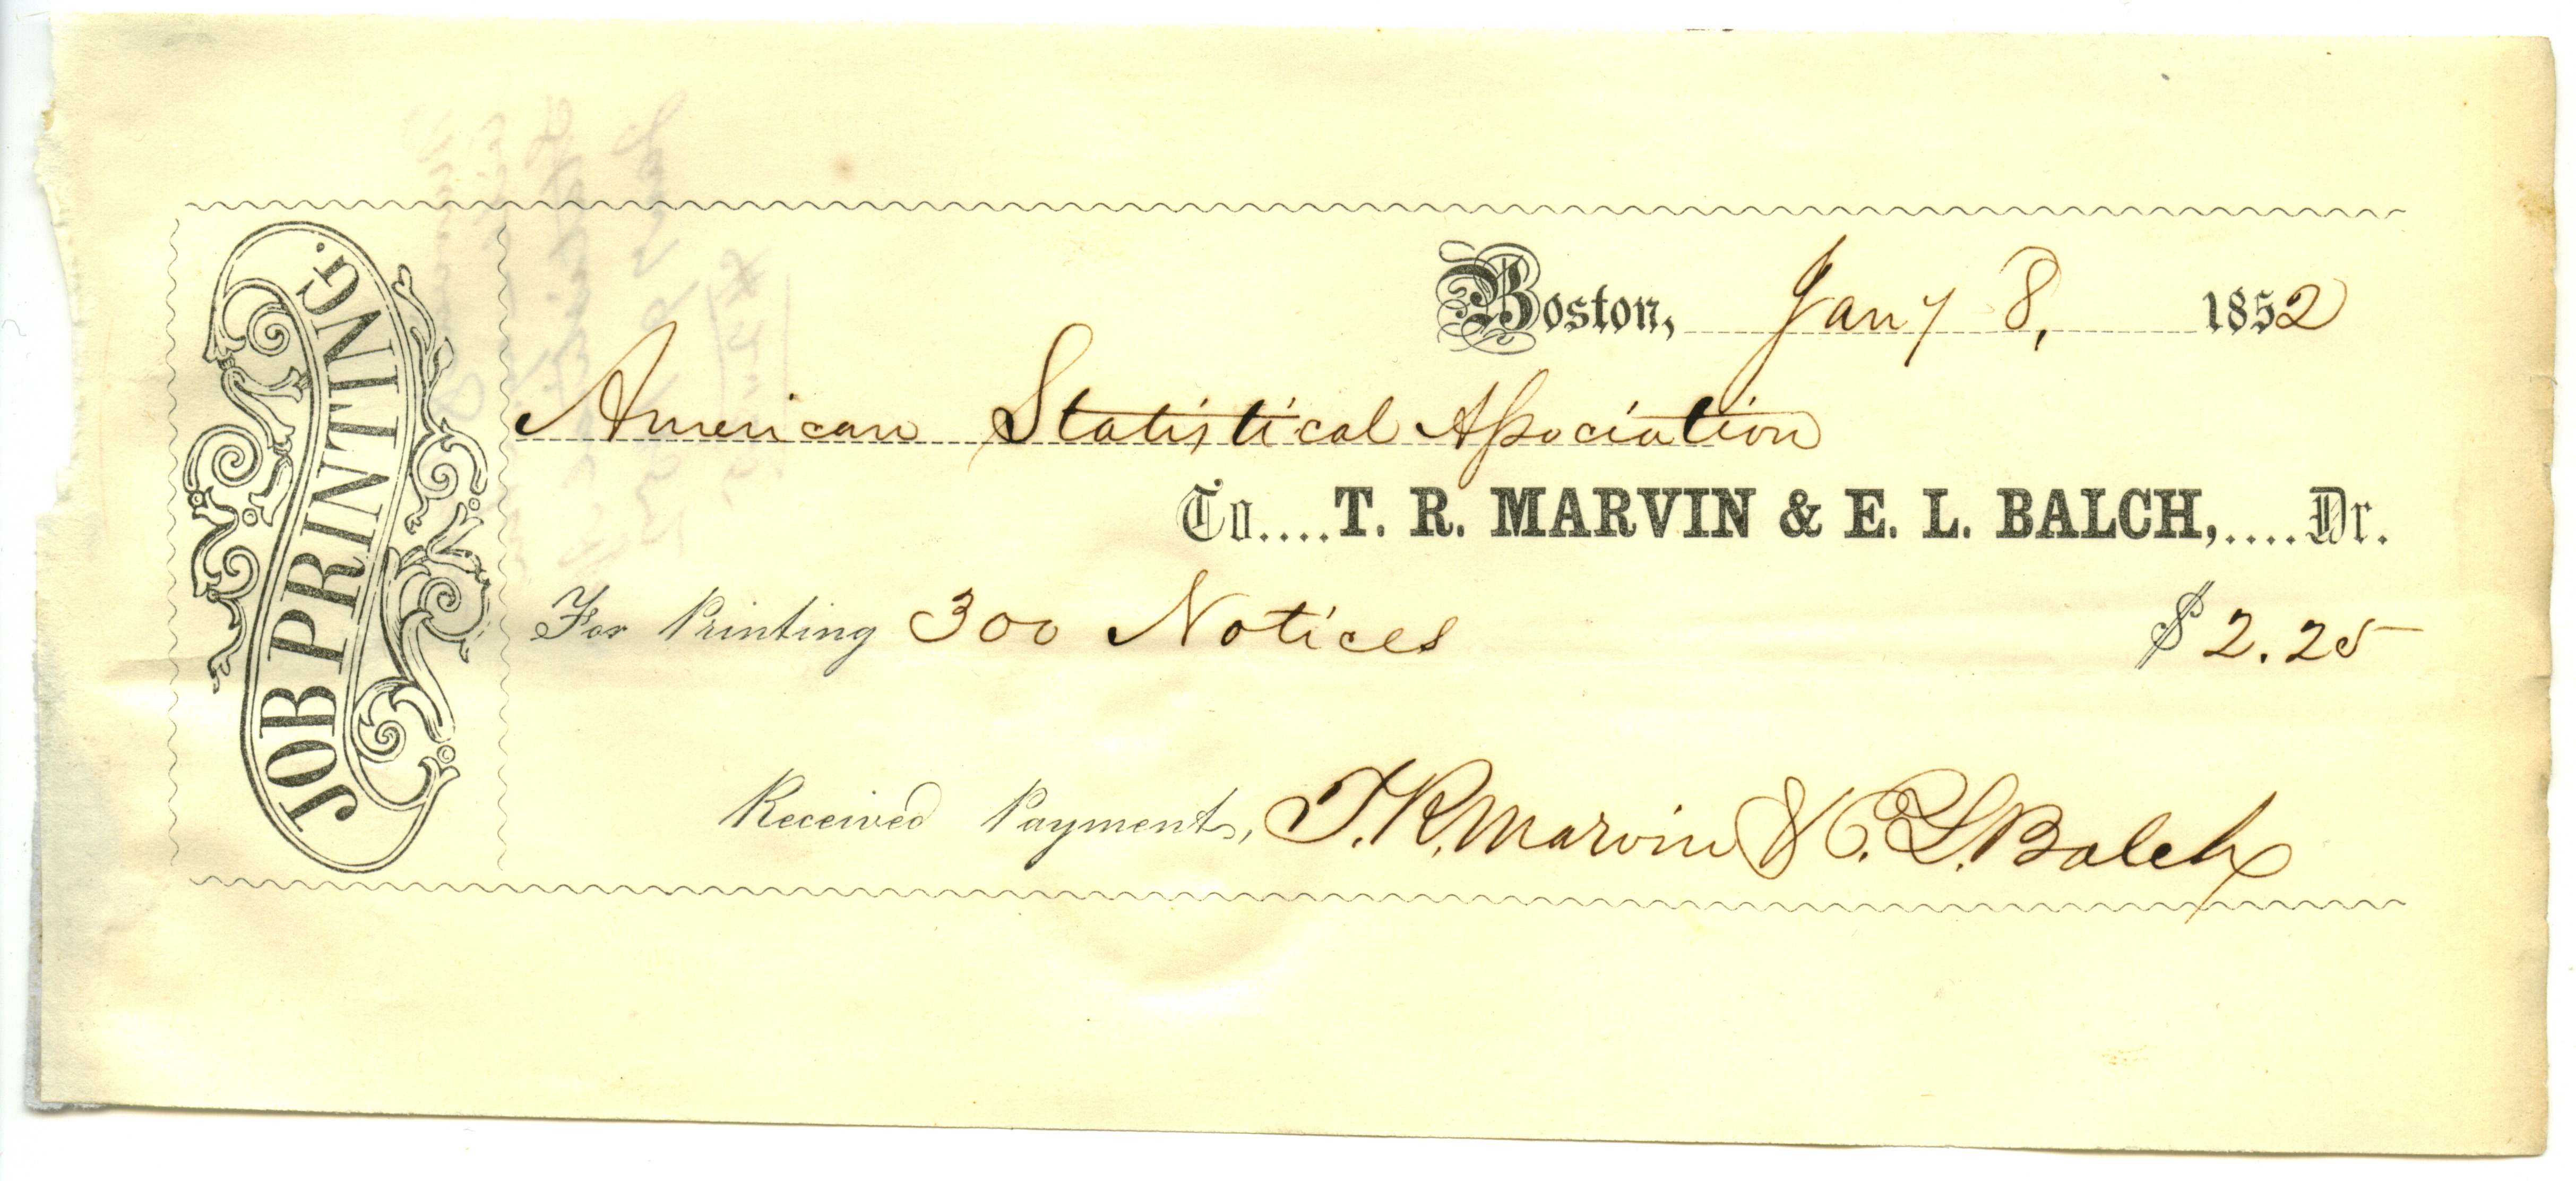 JOB PRINTING.
Boston, Jany 8, 1852
American Statistical Association
To....T. R. MARVIN & E. L. BALCH,....Dr.
For Printing 300 Notices $2.25
Received Payment, T.R. Marvin & E. L. Balch